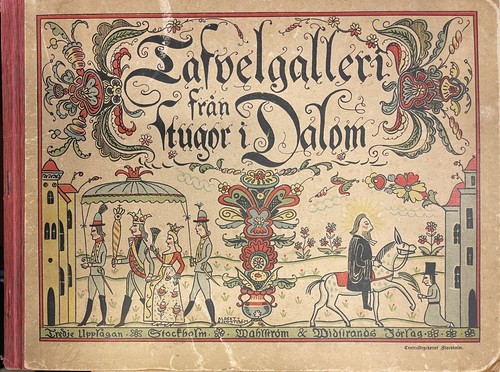 Tafvelgalleri
från
Stugor i Dalom
ALBERT
ENGSTRÖM
Tredje Upplagan · Stockholm · Wahlström & Widstrands Förlag
Centraltryckeriet Stockholm.